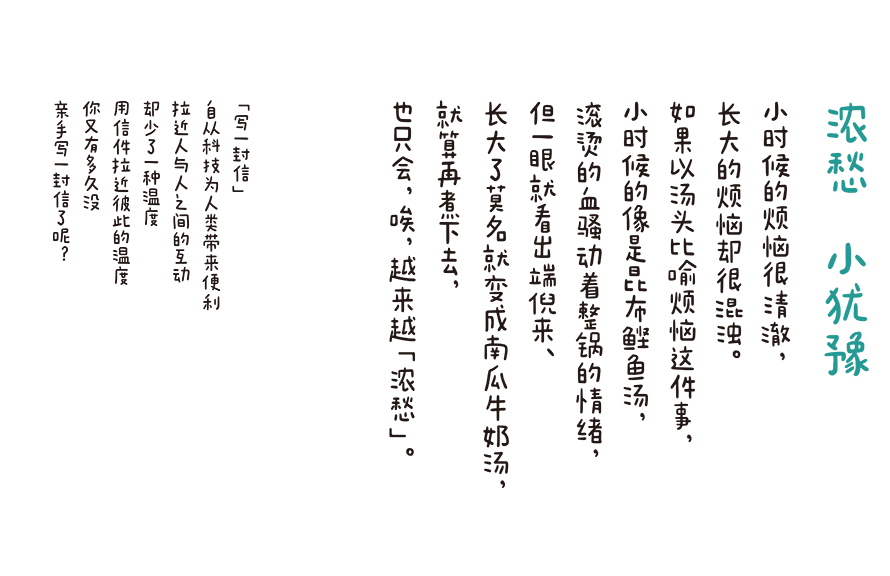 浓愁　小犹豫
小时候的烦恼很清澈，
长大的烦恼却很混浊。
如果以汤头比喻烦恼这件事，
小时候的像是昆布鲣鱼汤，
滚烫的血骚动着整锅的情绪，
但一眼就看出端倪来、
长大了莫名就变成南瓜牛奶汤，
就算再煮下去，
也只会，唉，越来越「浓愁」。
「写一封信」
自从科技为人类带来便利
拉近人与人之间的互动
却少了一种温度
用信件拉近彼此的温度
你又有多久没
亲手写一封信了呢？